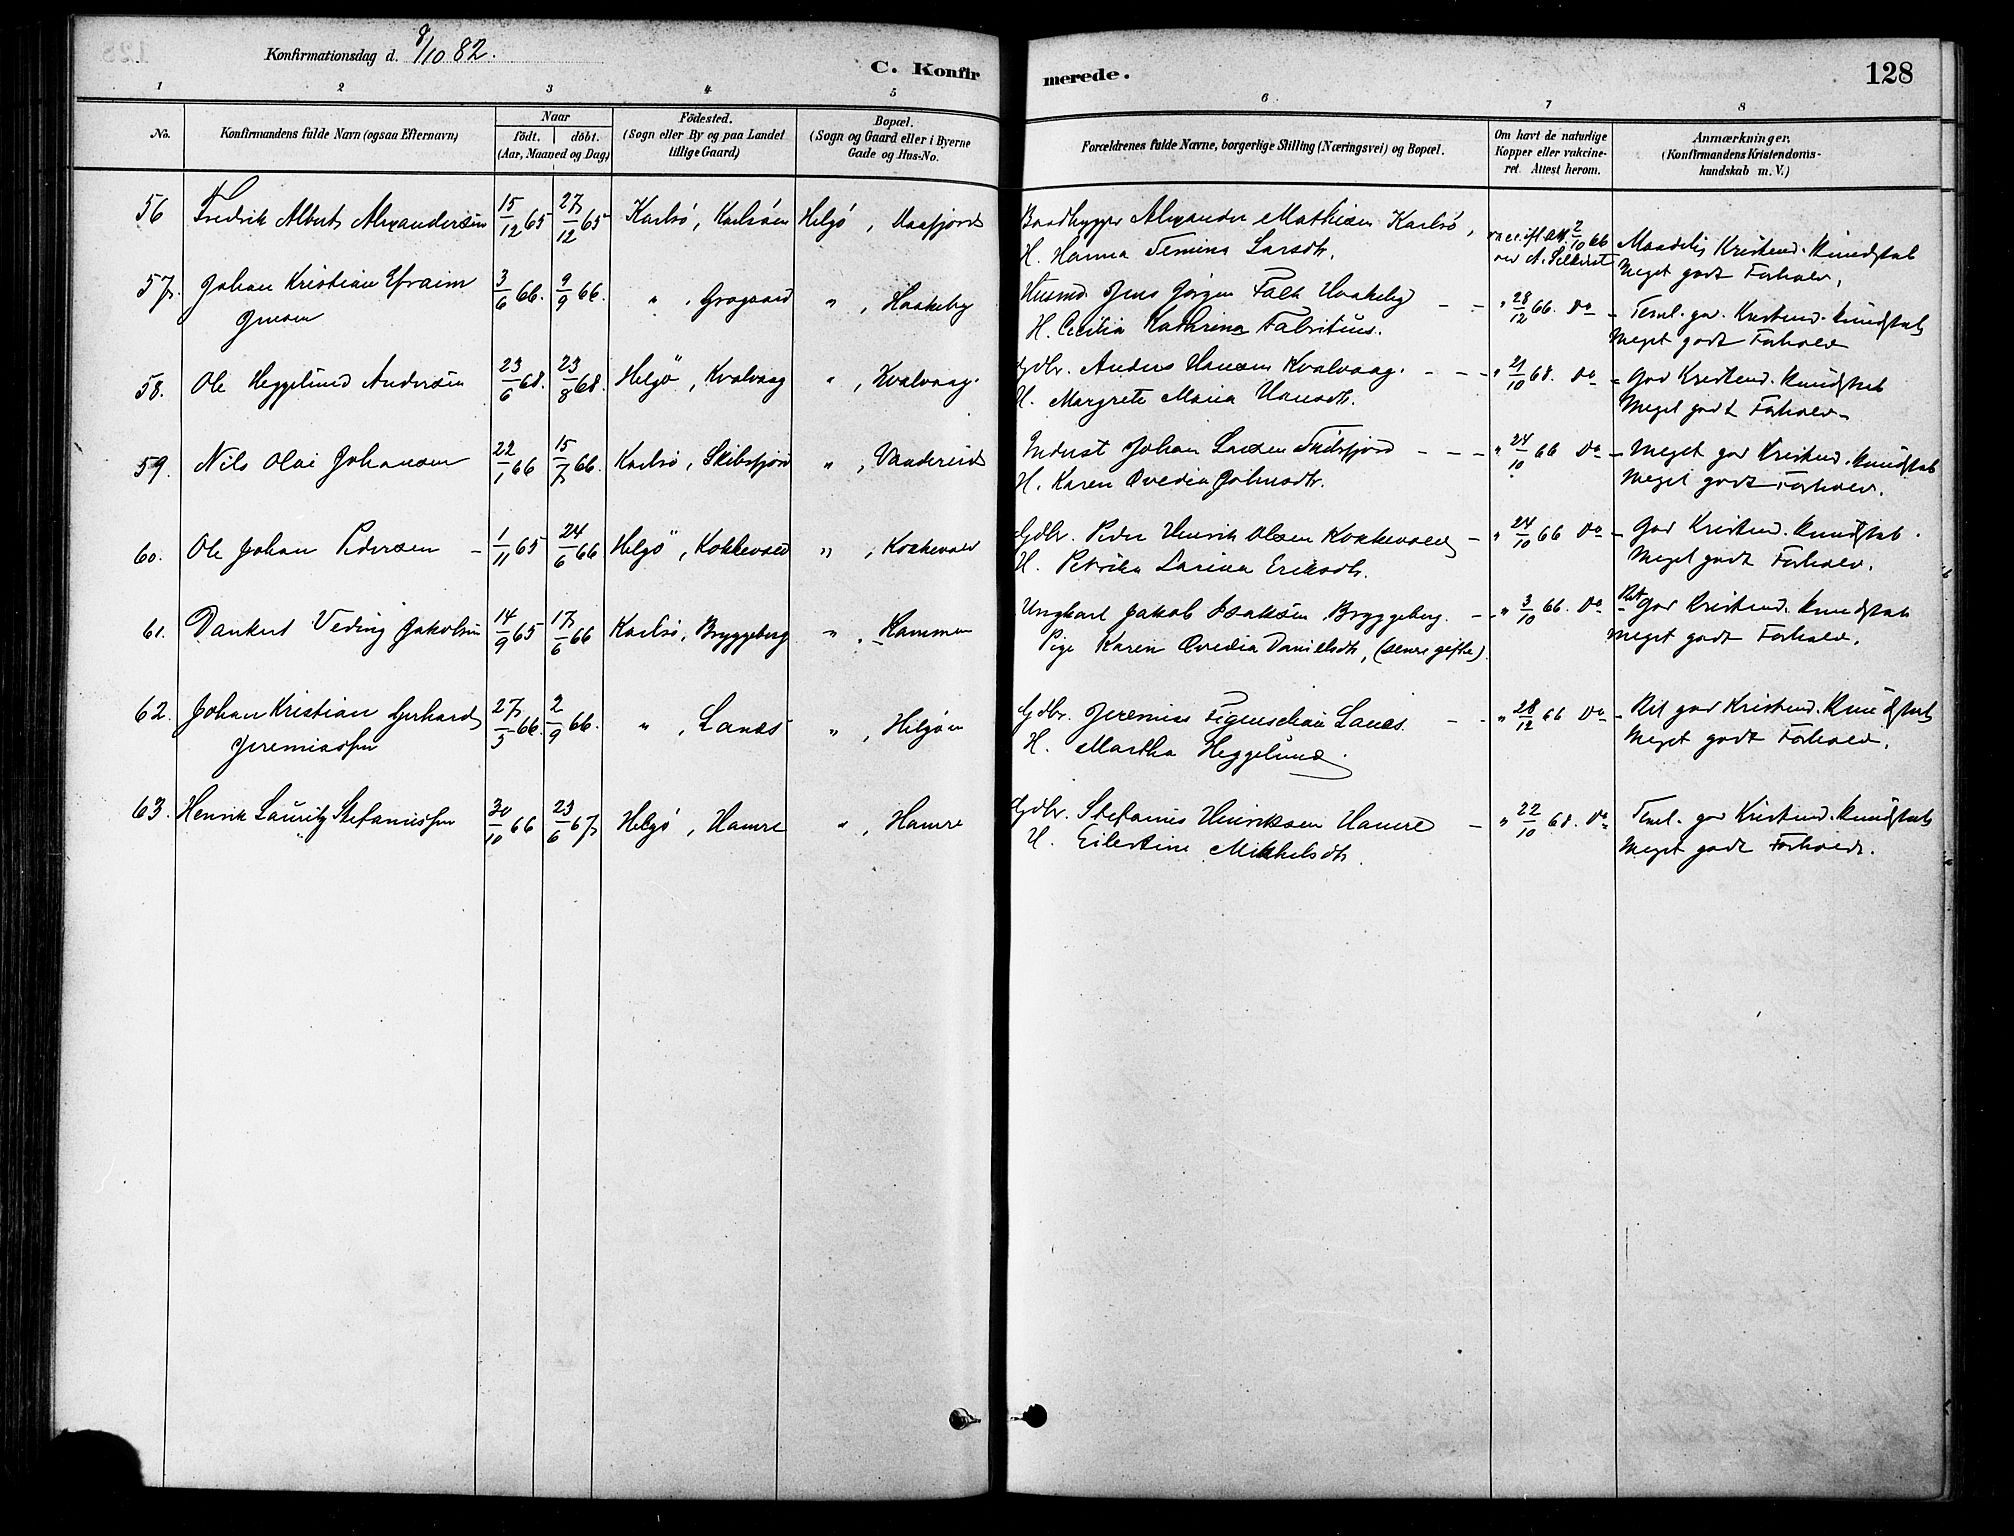 Konfirmationsdag d. 8/10 82.
C. Konfirmerede.
128
1 2 3 4 5 6 7 8
No.
Konfirmandens fulde Navn (ogsaa Efternavn)
Naar
födt. döbt.
(Aar, Maaned og Dag)
Födested.
(Sogn eller By og paa Landet
tillige Gaard)
Bopæl.
(Sogn og Gaard eller i Byerne
Gade og Hus-No.
Forældrenes fulde Navne, borgerlige Stilling (Næringsvei) og Bopæl.
Om havt de naturlige
Kopper eller vakcine-
ret. Attest herom.
Anmærkninger,
(Konfirmandens Kristendoms-
kundskab m. V.)
56 Fredrik Albert Alexandersen 15/12 65 27/12 65 Karlsö, Karlsöen Helgö, Baadbygger Alexander Mathisen Karlsö, 2/10 66 Maadelig Kristend. kundskab
H. Hanna Larsdtr. Meget godt Forhold.
57. Johan Kristian Efraim 3/6 66. 9/9 66. " , Grogaard " , Haakeby Husmd. Jens Jörgen Falk Haakeby - - " 28/12 66. Do - Teml. god Kristend. kundskab
Jensen H. Cecilia Kathrina Fabritius. Meget godt Forhold
58. Ole Heggelund Andersen 23/6 68. 23/8 68. Helgö, Kvalvaag " , Kvalvaag. Gdbr. Anders Hansen Kvalvaag. - - - " 21/10 68. Do - God Kristend. kundskab
H. Margrete Maria Hansdtr. Meget godt Forhold
59. Nils Olai Johansen 22/1 66 15/7 66. Karlsö, Skibsfjord " , Vandereid Inderst Johan Larsen Skibsfjord - - - " 24/10 66 Do - Meget god Kristend. kundskab
H. Karen Ovedia Johnsdtr. Meget godt Forhold.
60. Ole Johan Pedersen - 1/11 65 24/6 66 Helgö, Kokkevold " , Kokkevold Gdbr. Peder Henrik Olsen Kokkevold - " 24/10 66 Do - God Kristend. kundskab.
H. Petrika Larina Eriksdtr. Meget godt Forhold.
61. Dankert Veding Jakobsen 14/9 65 17/6 66 Karlsö, Bryggeberg " , Kammen Ungkarl Jakob Isaksen Bryggeberg. - " 3/10 66. Do - Ret God Kristend. kundskab
Pige Karen Ovedia Danielsdtr, (senere gifte). Meget godt Forhold.
62. Johan Kristian Gerhard 27/5 66. 2/9 66. " , Lanes " , Helgöen Gdbr. Jeremias Figenschau Lanes. - - " 28/12 66 Do - Ret god Kristend. kundskab
Jeremiassen H. Martha Heggelund. Meget godt Forhold.
63. Henrik Lauritz Stefanussen 30/10 66 23/6 67 Helgö, Hamre " , Hamre Gdbr. Stefanus Henriksen Hamre - " 22/10 68. Do Teml. god Kristend. kundskab
H. Eilertine Mikkelsdtr. Meget godt Forhold.